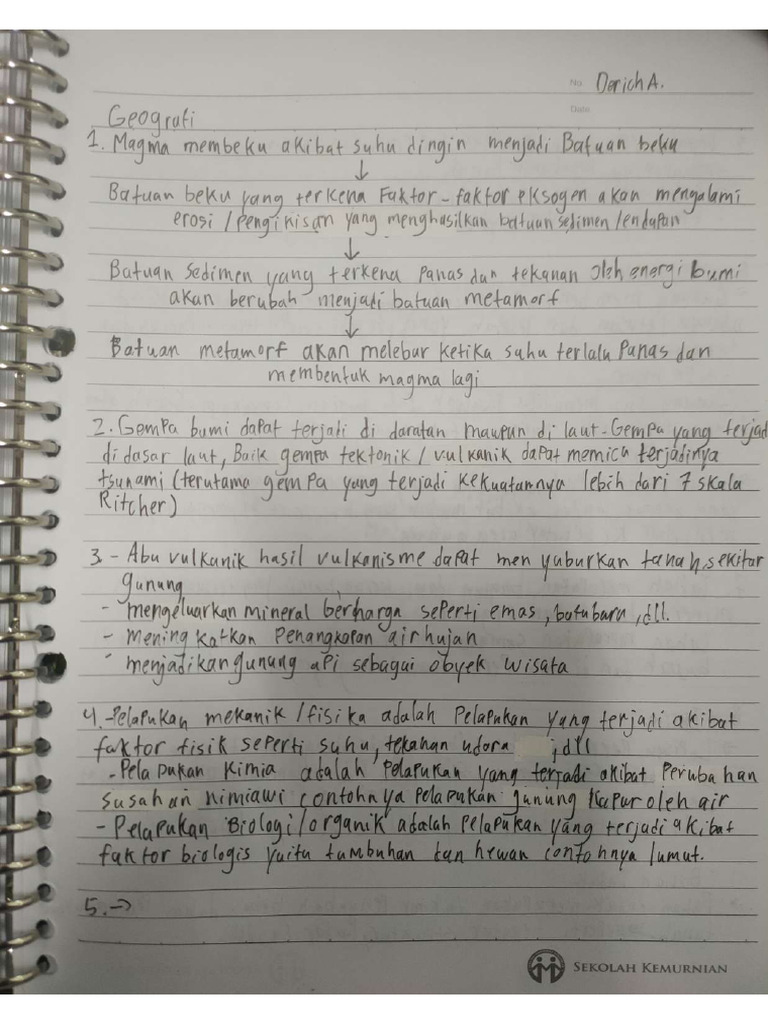 No. Derich A.
Date
Geografi
1. Magma membeku akibat suhu dingin menjadi Batuan beku
↓
Batuan beku yang terkena Faktor-faktor eksogen akan mengalami
erosi/pengikisan yang menghasilkan batuan sedimen/endapan
↓
Batuan sedimen yang terkena panas dan tekanan oleh energi bumi
akan berubah menjadi batuan metamorf
↓
Batuan metamorf akan melebur ketika suhu terlalu panas dan
membentuk magma lagi
2. Gempa bumi dapat terjadi di daratan maupun di laut. Gempa yang terjad
di dasar laut, Baik gempa tektonik/vulkanik dapat memicu terjadinya
tsunami (terutama gempa yang terjadi kekuatannya lebih dari 7 skala
Ritcher)
3. - Abu vulkanik hasil vulkanisme dapat menyuburkan tanah sekitar
gunung
- mengeluarkan mineral berharga seperti emas, batubara, dll.
- meningkatkan penangkapan air hujan
- menjadikan gunung api sebagai obyek wisata
4. - Pelapukan mekanik/fisika adalah pelapukan yang terjadi akibat
faktor fisik seperti suhu, tekanan udara, dll
- Pelapukan kimia adalah pelapukan yang terjadi akibat perubahan
susahan kimiawi contohnya pelapukan gunung kapur oleh air
- Pelapukan Biologi/organik adalah pelapukan yang terjadi akibat
faktor biologis yaitu tumbuhan dan hewan contohnya lumut.
5. →
SEKOLAH KEMURNIAN